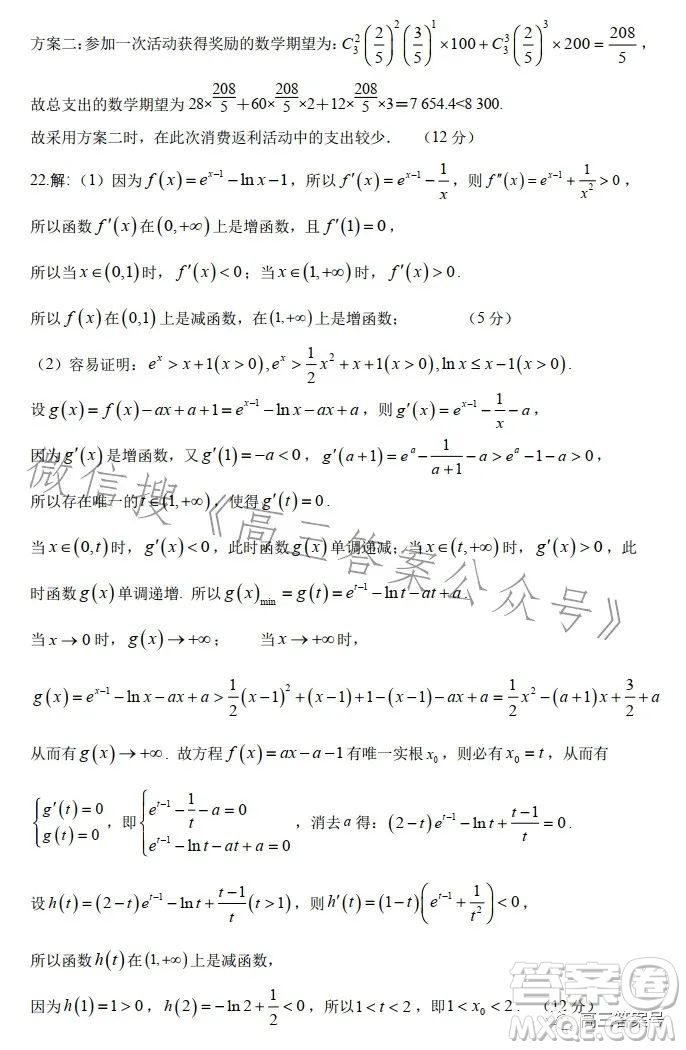 方案二：参加一次活动获得奖励的数学期望为：C₃²(2/5)²(3/5)¹×100+C₃³(2/5)³×200=208/5，
故总支出的数学期望为 28×208/5+60×208/5×2+12×208/5×3=7 654.4<8 300.
故采用方案二时，在此次消费返利活动中的支出较少． （12 分）
22.解:（1）因为 f(x)=e^(x−1)−ln x−1，所以 f′(x)=e^(x−1)−1/x，则 f″(x)=e^(x−1)+1/x²>0，
所以函数 f′(x) 在(0,+∞)上是增函数，且 f′(1)=0，
所以当 x∈(0,1) 时，f′(x)<0；当 x∈(1,+∞) 时，f′(x)>0．
所以 f(x) 在(0,1)上是减函数，在(1,+∞)上是增函数； （5 分）
（2）容易证明：e^x>x+1(x>0),e^x>1/2x²+x+1(x>0),ln x≤x−1(x>0)．
设 g(x)=f(x)−ax+a+1=e^(x−1)−ln x−ax+a，则 g′(x)=e^(x−1)−1/x−a，
因为 g′(x) 是增函数，又 g′(1)=−a<0，g′(a+1)=e^a−1/(a+1)−a>e^a−1−a>0，
所以存在唯一的 t∈(1,+∞)，使得 g′(t)=0．
当 x∈(0,t) 时，g′(x)<0，此时函数 g(x) 单调递减；当 x∈(t,+∞) 时，g′(x)>0，此
时函数 g(x) 单调递增. 所以 g(x)min=g(t)=e^(t−1)−ln t−at+a．
当 x→0 时，g(x)→+∞； 当 x→+∞ 时，
g(x)=e^(x−1)−ln x−ax+a>1/2(x−1)²+(x−1)+1−(x−1)−ax+a=1/2x²−(a+1)x+3/2+a
从而有 g(x)→+∞．故方程 f(x)=ax−a−1 有唯一实根 x₀，则必有 x₀=t，从而有
{g′(t)=0 g(t)=0，即{e^(t−1)−1/t−a=0 e^(t−1)−ln t−at+a=0，消去 a 得：(2−t)e^(t−1)−ln t+(t−1)/t=0．
设 h(t)=(2−t)e^(t−1)−ln t+(t−1)/t(t>1)，则 h′(t)=(1−t)(e^(t−1)+1/t²)<0，
所以函数 h(t) 在(1,+∞)上是减函数，
因为 h(1)=1>0，h(2)=−ln 2+1/2<0，所以 1<t<2，即 1<x₀<2． （12 分）
微信搜《高三答案公众号》
答案圈
MXQE.COM
高三答案号